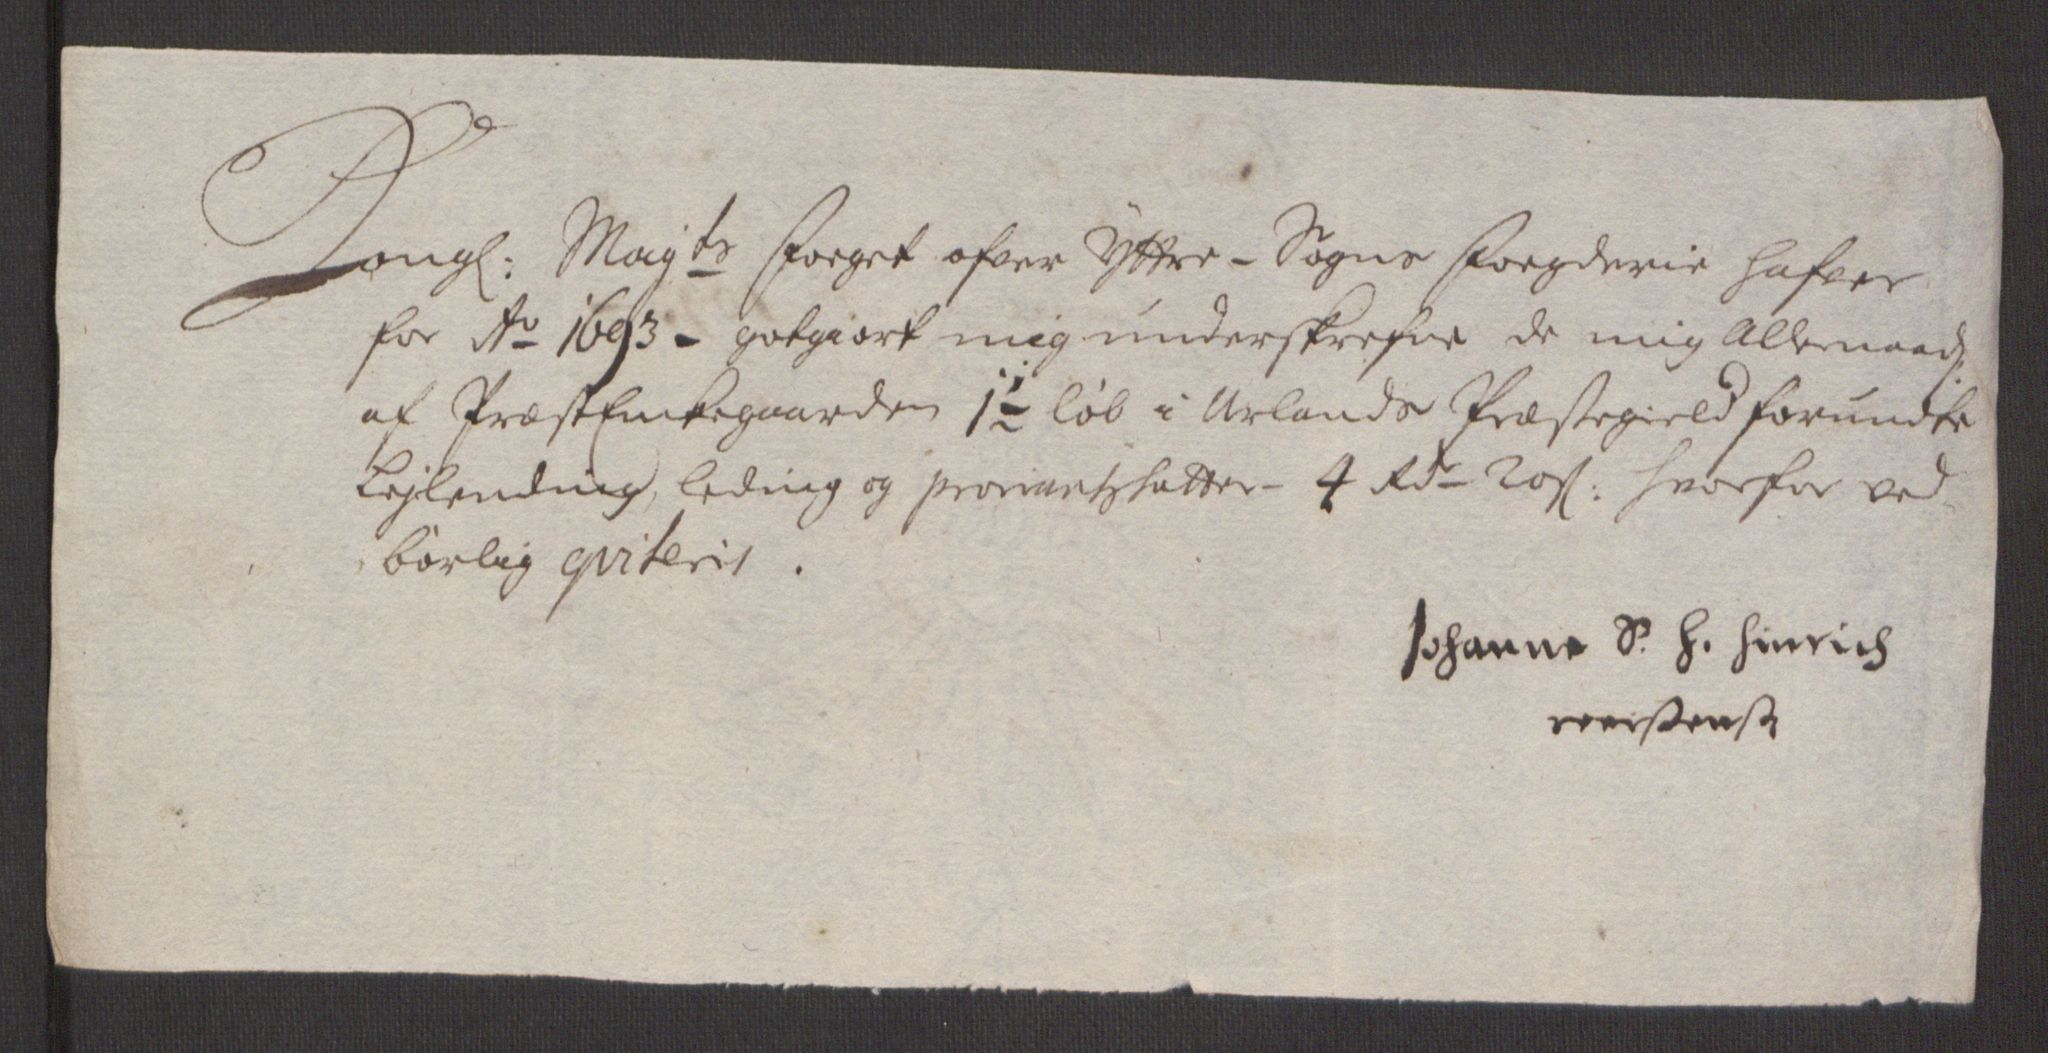 Kongl: Mayts Foeget ofver Yttre-Sogns Foegderie hafver
for Ao 1693 - gotgiort mig underskrefne de mig Allernaadst
af PræstEnkegaarden 1½ løb i Urlands Præstegield forundte
Lejlending, leding og proviantschatter - 4 Rdr 20 s: hvorfor ved
børlig qviteris.
Johanne S. H. Hinrich